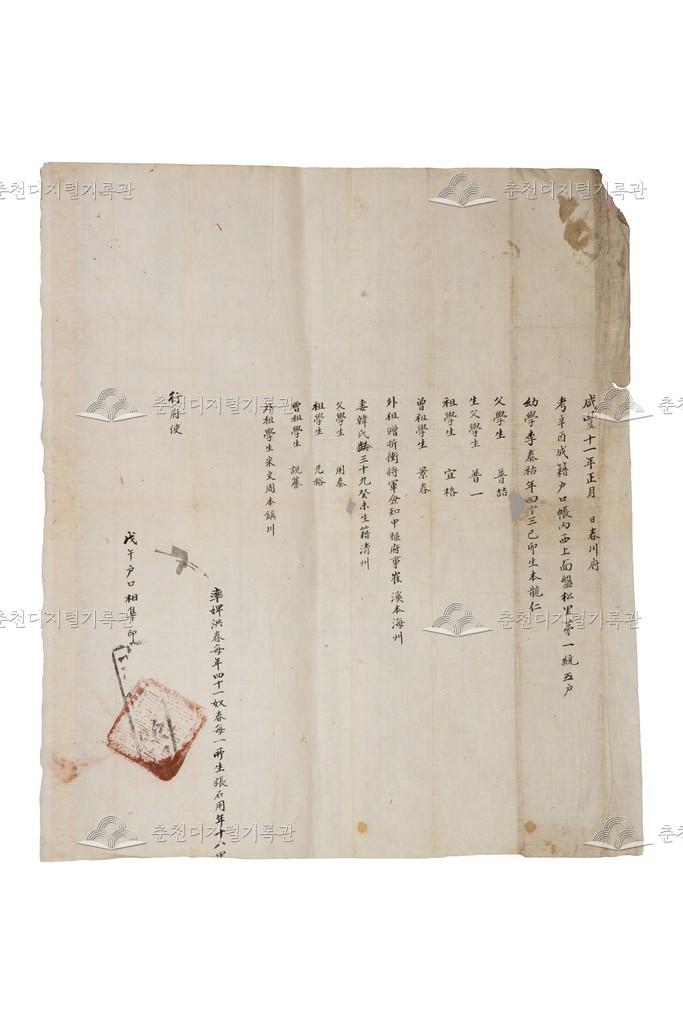 咸豊十一年正月 日春川府
考辛酉成籍戶口帳內西上面盤松里第一統五戶
幼學李泰秥年四十三己卯生本龍仁
父學生 普喆
生父學生 普一
祖學生 宜格
曾祖學生 景春
外祖贈折衝將軍僉知中樞府事崔 溪本海州
妻韓氏齡三十九癸未生籍清州
父學生 用泰
祖學生 元裕
曾祖學生 說
外祖學生宋文周本鎮川
率婢洪春每年四十一奴春每一所生張石用年十八
行府使
戊午戶口相準印
춘천디지털기록관
춘천디지털기록관
춘천디지털기록관
춘천디지털기록관
춘천디지털기록관
춘천디지털기록관
춘천디지털기록관
춘천디지털기록관